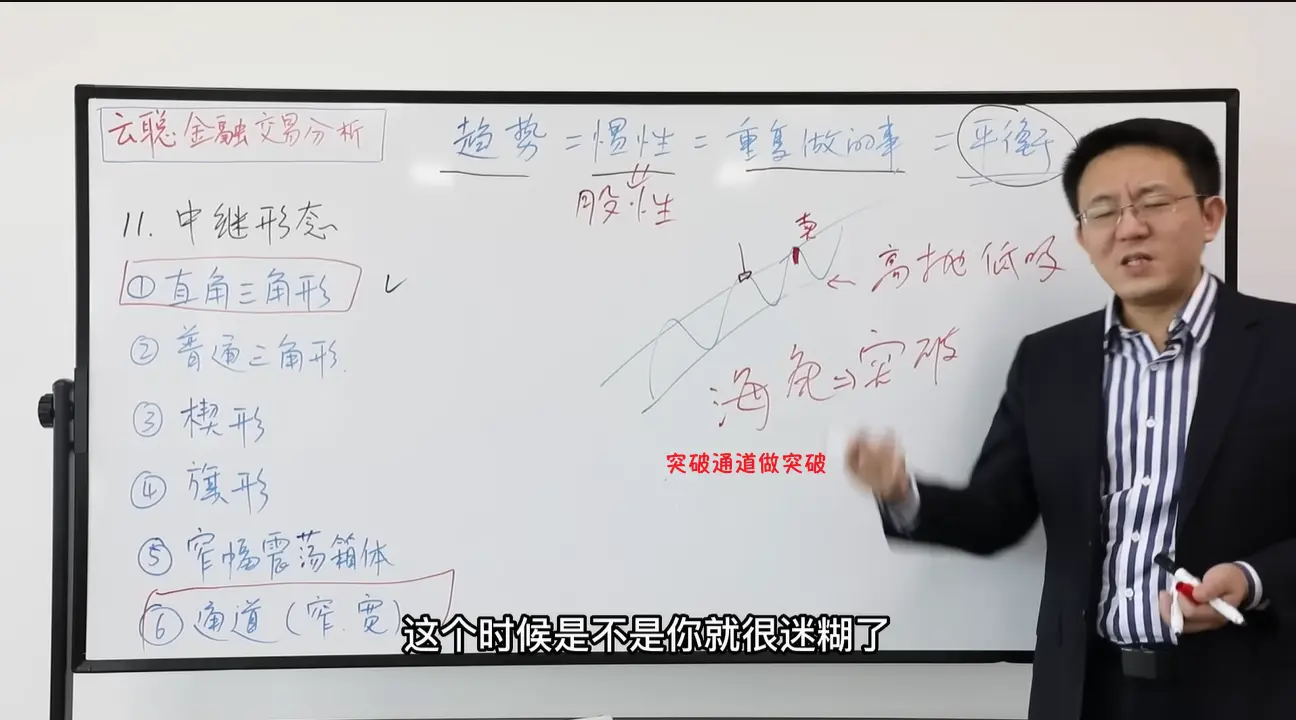 云聪金融交易分析
趋势=惯性=重复做的事=平衡
股性
11.中继形态
①直角三角形 ✓
②普通三角形.
③楔形
④旗形
⑤窄幅震荡箱体
⑥通道(窄.宽)
卖
←高抛低吸
海龟⇒突破
突破通道做突破
这个时候是不是你就很迷糊了